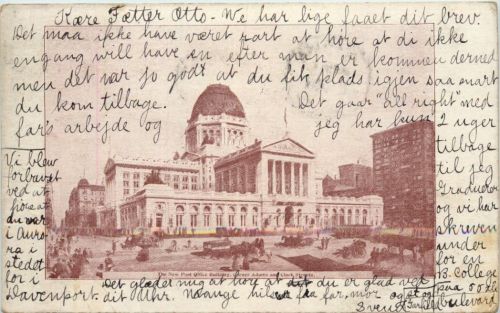 Kære Fætter Otto - We har lige faaet dit brev.
Det maa ikke have været rart at höre at di ikke
engang will have en efter man er kommen derned
men det var jo godt at du fik plads igjen saa snart
du kom tilbage. Det gaar "all right" med
far's arbejde og jeg har kun 2 uger
tilbage
til jeg
Graduerer
og vi har
skreven
under
for en
B. College
paa
boulevard
Vi blew
forbavset
ved at
höre at
du var
i Auro-
ra i
stedet
for i
Davenport.
The New Post Office Building, Corner Adams and Clark Streets.
Det glæder mig at höre at du er glad ved
dit Uhr. Mange hilsner fra far, mor og
Svend